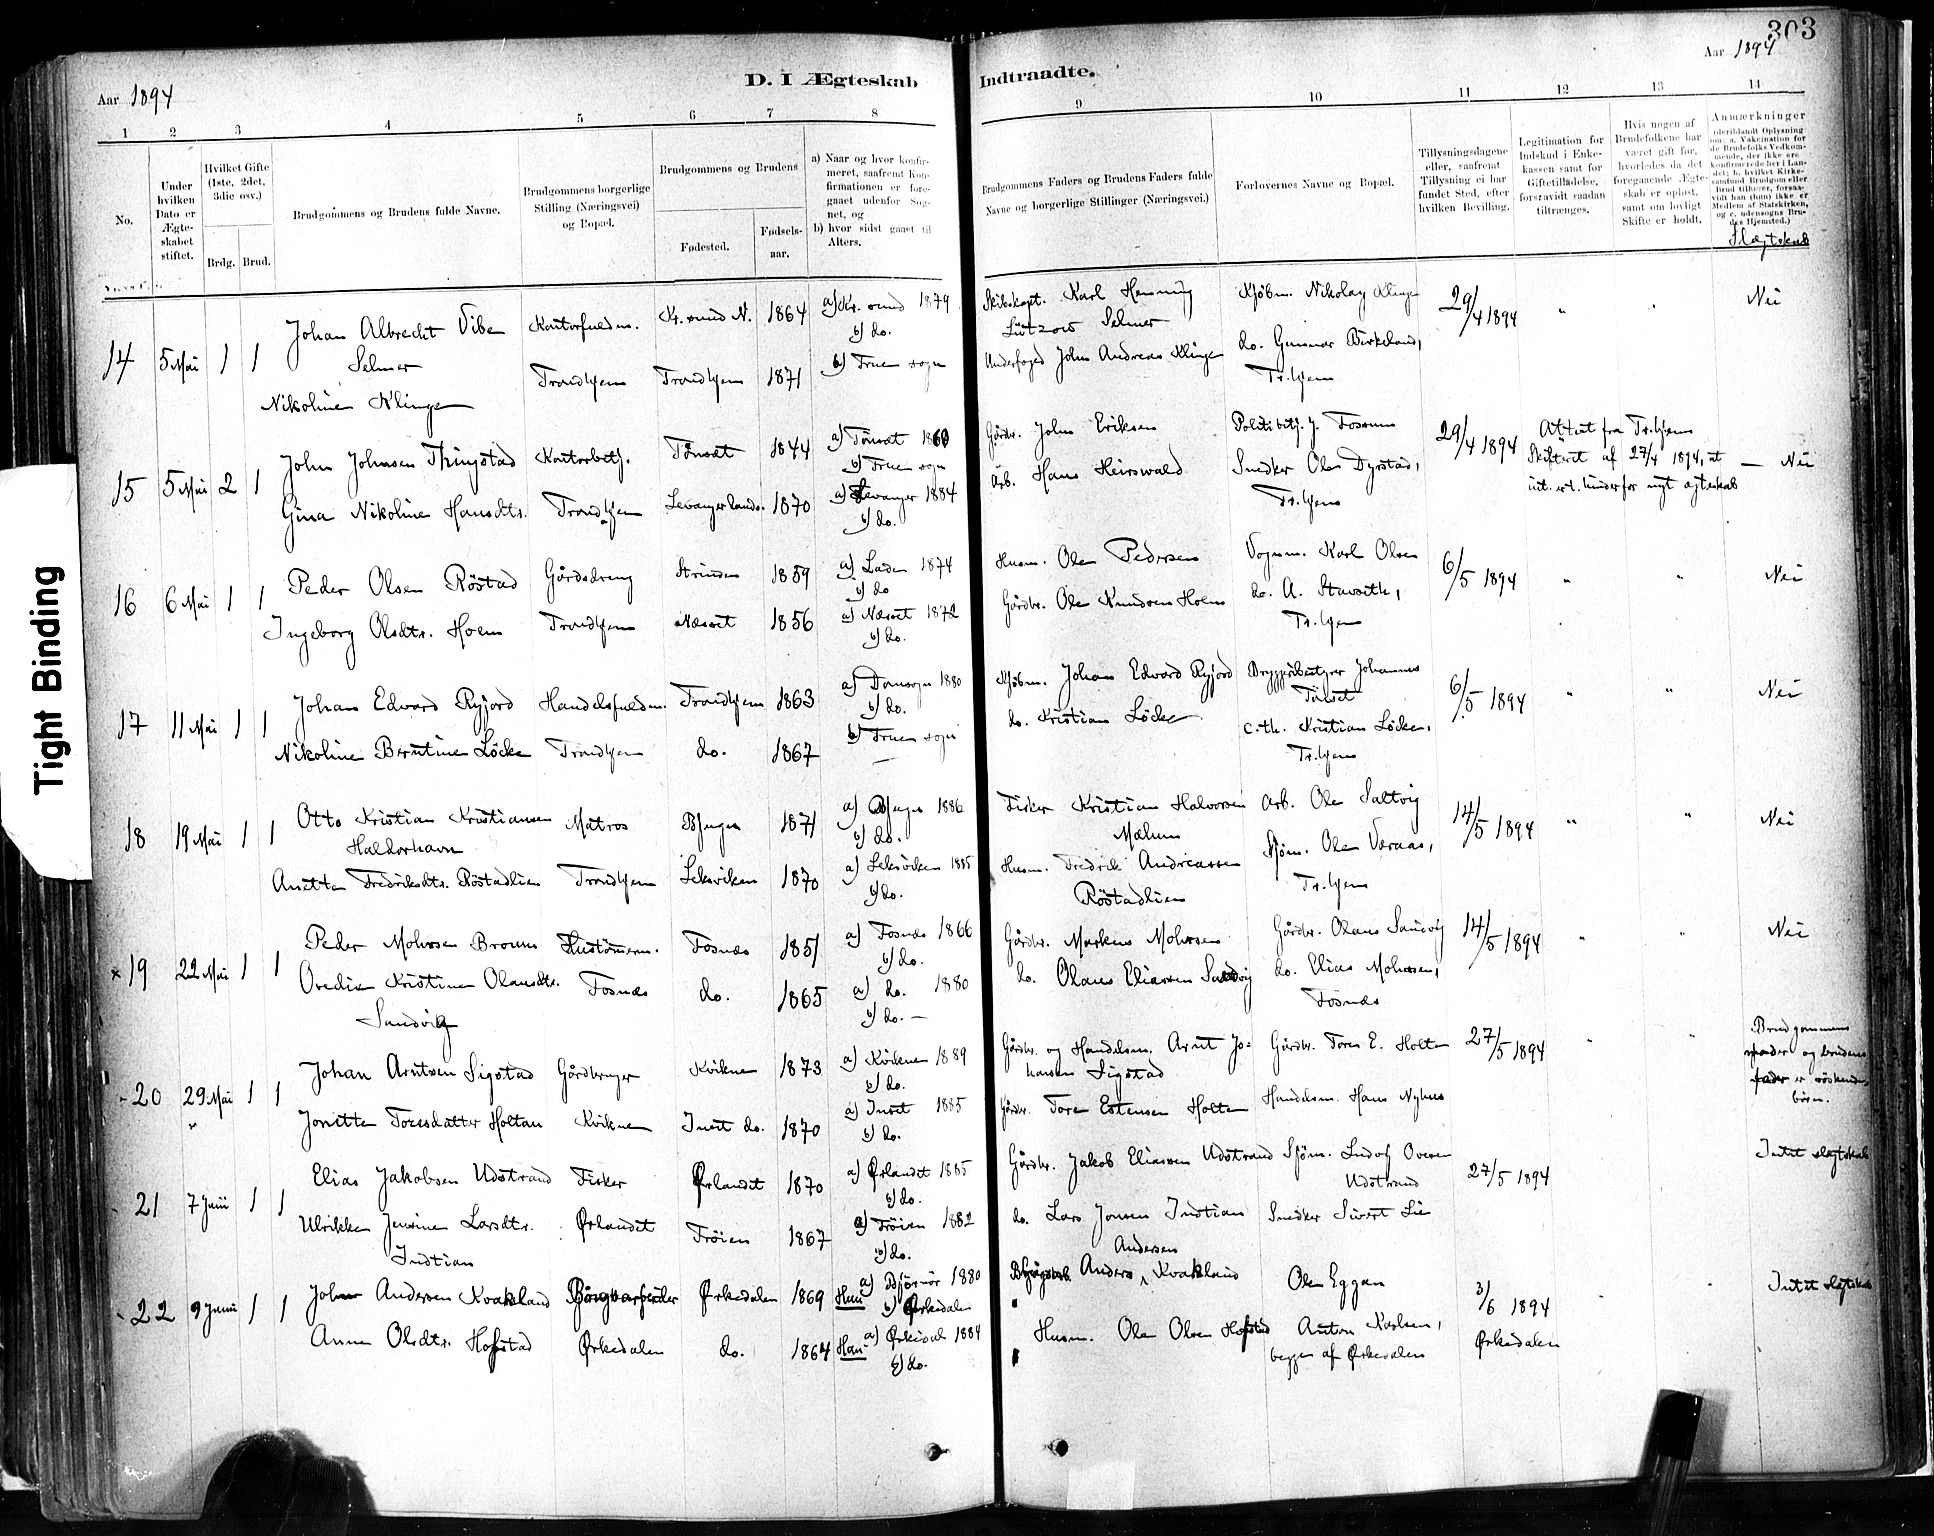 303
Aar 1894
D. I Ægteskab Indtraadte.
Aar 1894
1 2 3 4 5 6 7 8 9 10 11 12 13 14
No.
Under hvilken Dato er Ægte-skabet stiftet.
Hvilket Gifte (1ste, 2det, 3die osv.)
Brdg. Brud.
Brudgommens og Brudens fulde Navne.
Brudgommens borgerlige Stilling (Næringsvei) og Bopæl.
Brudgommens og Brudens
Fødested.
Fødsels-aar.
a) Naar og hvor konfir-meret, saafremt Kon-firmationen er fore-gaaet udenfor Sog-net, og
b) hvor sidst gaaet til Alters.
Brudgommens Faders og Brudens Faders fulde Navne og borgerlige Stillinger (Næringsvei.)
Forlovernes Navne og Bopæl.
Tillysningsdagene eller, saafremt Tillysning ei har fundet Sted, efter hvilken Bevilling.
Legitimation for Indskud i Enke-kassen samt for Giftetilladelse, forsaavidt saadan tiltrænges.
Hvis nogen af Brudefolkene har været gift før, hvorledes da det foregaaende Ægte-skab er opløst, samt om lovligt Skifte er holdt.
Anmærkninger
(deriblandt Oplysning om: a. Vakcination for de Brudefolks Vedkom-mende, der ikke ere konfirmerede her i Lan-det; b. hvilket Kirke-samfund Brudgom eller Brud tilhører, forsaa-vidt han (hun) ikke er Medlem af Statskirken, og c. udensogns Bru-des Hjemsted.)
Slægtskab
14 5 Mai 1 1
Johan Albrecht Vibe Selmer
Nikoline Klinge
Kontorfuldm.
Trondhjem
Kr.sund N. 1864
Trondhjem 1871
a) Kr.sund 1879
b) do.
b) Frue sogn
Skibskapt. Karl Henning Lützow Selmer
Underfoged John Andreas Klinge
Kjøbm. Nikolay Klinge
do. Gunnar Birkeland, Tr.hjem
29/4 1894 " " Nei
15 5 Mai 2 1
John Johnsen Thingstad
Gina Nikoline Hansdtr.
Kontorbetj.
Trondhjem
Tönset 1844
Levanger lands. 1870
a) Tönset 1860
b) Frue sogn
a) Levanger 1884
b) do.
Gårdbr. John Eriksen
Arb. Hans Heirswald
Politibetj. J. Fossum
Snedker Ole Dyrstad, Tr.hjem
29/4 1894
Attest fra Tr.hjems Skifteret af 27/4 1894, at int. er t. hinder for nyt ægteskab
— Nei
16 6 Mai 1 1
Peder Olsen Röstad
Ingeborg Olsdtr. Holm
Gårdsdreng
Trondhjem
Strinden 1859
Næsset 1856
a) Laden 1874
b) do
a) Næsset 1872
b) do.
Husm. Ole Pedersen
Gårdbr. Ole Knudsen Holm
Vognm. Karl Olsen
do. A. Stavseth, Tr.hjem
6/5 1894 " " Nei
17 11 Mai 1 1
Johan Edvard Ryjord
Nikoline Berntine Löcke
Handelsfuldm.
Trondhjem
Trondhjem 1863
do. 1867
a) Domsogn 1880
b) do.
b) Frue sogn
—
Kjöbm. Johan Edvard Ryjord
do. Kristian Löcke
Bryggeribestyrer Johannes Tilset
c.th. Kristian Löcke, Tr.hjem
6/5 1894 " " Nei
18 19 Mai 1 1
Otto Kristian Kristiansen Haldorhavn
Anette Fredriksdtr. Röstadlien
Matros
Trondhjem
Bjugn 1871
Leksviken 1870
a) Bjugn 1886
b) do.
a) Leksviken 1885
b) do.
Fisker Kristian Halvorsen Mælum
Husm. Fredrik Andreassen Röstadlien
Arb. Ole Saltvig
Sjöm. Ole Veraas, Tr.hjem
14/5 1894 " " Nei
x 19 22 Mai 1 1
Peder Mohrsen Broum
Oredie Kristine Olausdtr. Sandvig
Hustömrerm.
Fosnæs
Fosnæs 1851
do. 1865
a) Fosnæs 1866
b) do.
a) do. 1880
b) do. —
Gårdbr. Markus Mohrsen
do. Olaus Eliassen Sandvig
Gårdbr. Olaus Sandvig
do. Elias Mohrsen, Fosnæs
14/5 1894 " " Nei
20 29 Mai 1 1
Johan Arntsen Sigstad
Jonetta Toresdatter Holtan
Gårdbruger
Kvikne
Kvikne 1873
Inset do. 1870
a) Kvikne 1889
b) do.
a) Inset 1885
b) do.
Gårdbr. og Handelsm. Arnt Jo=hansen Sigstad
Gårdbr. Tore Estensen Holten
Gårdbr. Tores E. Holten
Handelsm. Hans Nyhus
27/5 1894 " "
Brudgommens moder og brudens fader er söskende-börn.
21 7 Juni 1 1
Elias Jakobsen Udstrand
Ulrikke Jensine Larsdtr. Indtian
Fisker
Ørlandet
Ørlandet 1870
Fröien 1867
a) Ørlandet 1885
b) do.
a) Fröien 1882
b) do.
Gårdbr. Jakob Eliassen Udstrand
do. Lars Jonsen Indtian
Sjöm. Ludvig Oveson Udstrand
Snedker Sivert Lie
27/5 1894
Intet slægtskab
22 9 Juni 1 1
John Andersen Kvakland
Anne Olsdtr. Hofstad
Ørkedalen
Ørkedalen 1869
do. 1864
Han a) Bjørnör 1880
b) Ørkedalen
Hun a) Ørkedal 1884
b) do.
Anders Andersen Kvakland
Husm. Ole Olsen Hofstad
Ole Eggan
Anton Karlsen, begge af Ørkedalen
3/6 1894 Ørkedalen
Intet slægtskab
Tight Binding